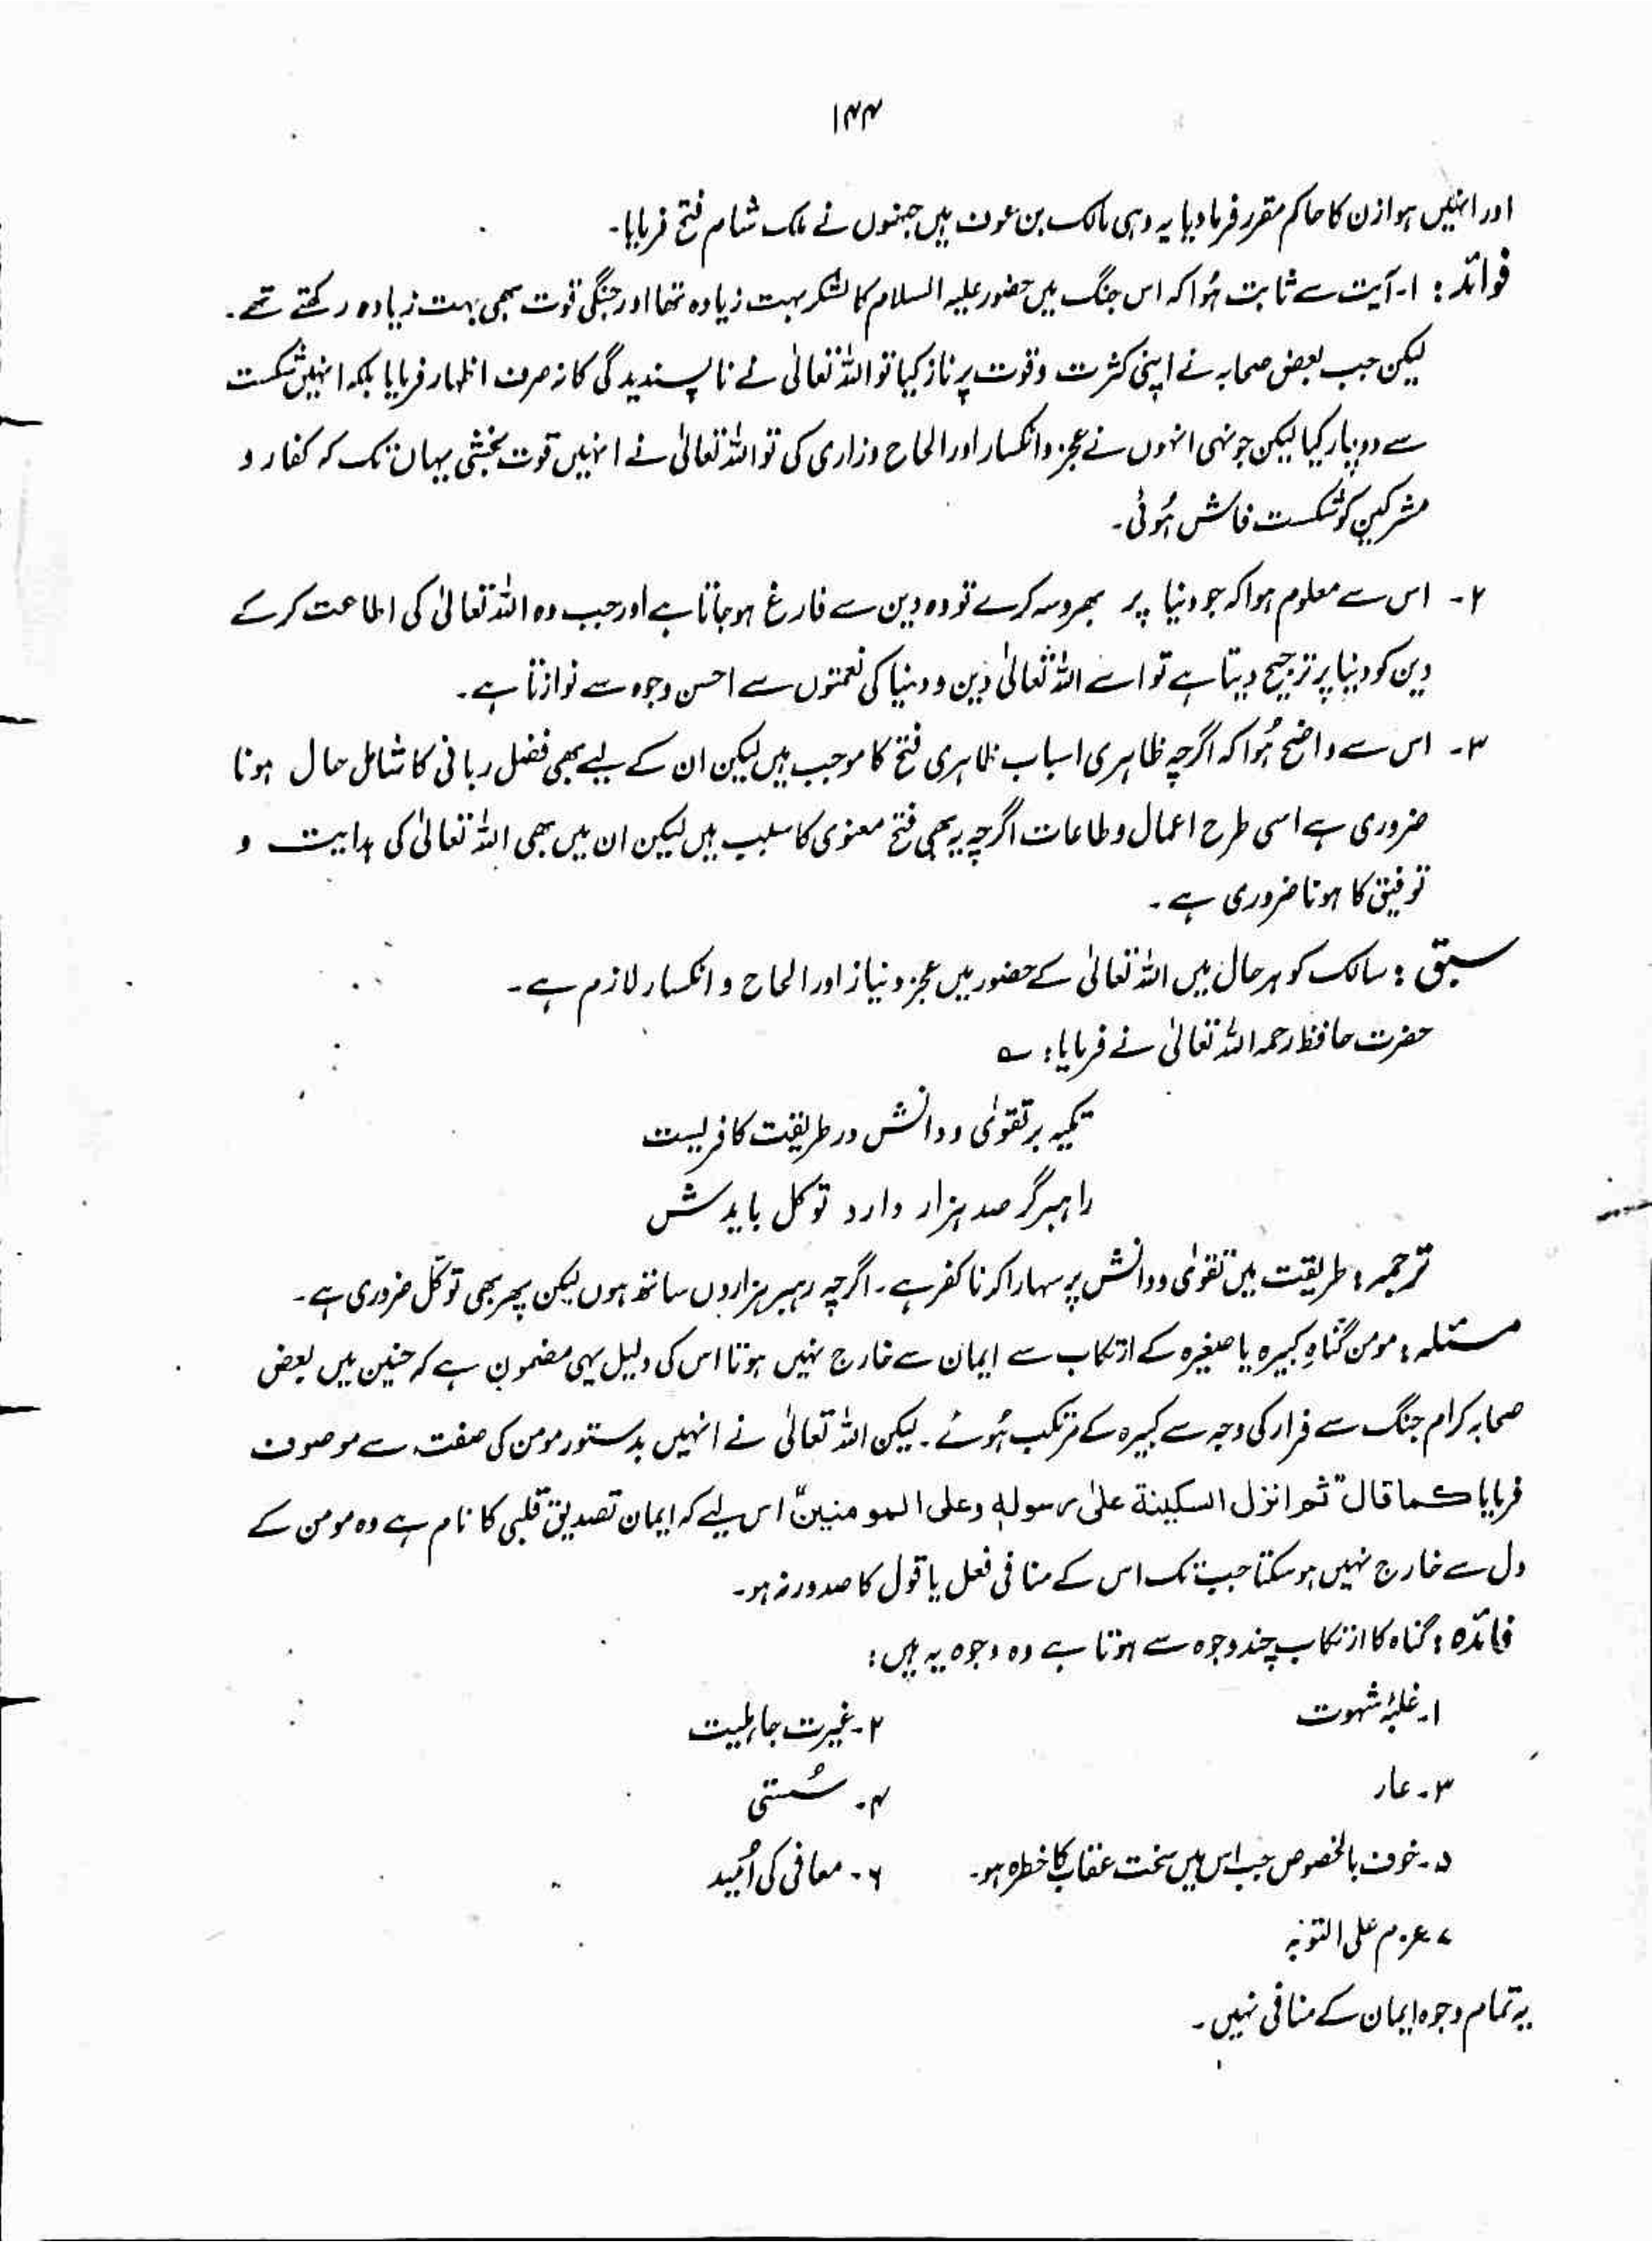 ۱۴۴
اور انہیں ہوازن کا حاکم مقرر فرما دیا یہ وہی مالک بن عوف ہیں جنہوں نے ملک شام فتح فرمایا۔
فوائد : ۱۔ آیت سے ثابت ہُوا کہ اس جنگ میں حضور علیہ السلام کا لشکر بہت زیادہ تھا اور جنگی قوت بھی بہت زیادہ رکھتے تھے۔
لیکن جب بعض صحابہ نے اپنی کثرت و قوت پر ناز کیا تو اللہ تعالیٰ نے ناپسندیدگی کا نہ صرف اظہار فرمایا بلکہ انہیں شکست
سے دوچار کیا لیکن جونہی انہوں نے عجز و انکسار اور الحاح و زاری کی تو اللہ تعالیٰ نے انہیں قوت بخشی یہاں تک کہ کفار و
مشرکین کو شکست فاش ہُوئی۔
۲۔ اس سے معلوم ہوا کہ جو دنیا پر بھروسہ کرے تو وہ دین سے فارغ ہو جاتا ہے اور جب وہ اللہ تعالیٰ کی اطاعت کر کے
دین کو دنیا پر ترجیح دیتا ہے تو اسے اللہ تعالیٰ دین و دنیا کی نعمتوں سے احسن وجوہ سے نوازتا ہے۔
۳۔ اس سے واضح ہُوا کہ اگرچہ ظاہری اسباب ظاہری فتح کا موجب ہیں لیکن ان کے لیے بھی فضل ربانی کا شامل حال ہونا
ضروری ہے اسی طرح اعمال و طاعات اگرچہ یہ بھی فتح معنوی کا سبب ہیں لیکن ان میں بھی اللہ تعالیٰ کی ہدایت و
توفیق کا ہونا ضروری ہے۔
سبق : سالک کو ہر حال میں اللہ تعالیٰ کے حضور میں عجز و نیاز اور الحاح و انکسار لازم ہے۔
حضرت حافظ رحمہ اللہ تعالیٰ نے فرمایا : ؎
تکیہ بر تقویٰ و دانش در طریقت کافریست
راہبر گر صد ہزار دارد توکل بایدش
ترجمہ : طریقت میں تقویٰ و دانش پر سہارا کرنا کفر ہے۔ اگرچہ رہبر ہزاروں ساتھ ہوں لیکن پھر بھی توکّل ضروری ہے۔
مسئلہ : مومن گناہِ کبیرہ یا صغیرہ کے ارتکاب سے ایمان سے خارج نہیں ہوتا اس کی دلیل یہی مضمون ہے کہ حنین میں بعض
صحابہ کرام جنگ سے فرار کی وجہ سے کبیرہ کے مرتکب ہُوئے۔ لیکن اللہ تعالیٰ نے انہیں بدستور مومن کی صفت سے موصوف
فرمایا کما قال "ثم انزل السکینة علیٰ رسولہٖ وعلی المومنین" اس لیے کہ ایمان تصدیق قلبی کا نام ہے وہ مومن کے
دل سے خارج نہیں ہو سکتا جب تک اس کے منافی فعل یا قول کا صدور نہ ہو۔
فائدہ : گناہ کا ارتکاب چند وجوہ سے ہوتا ہے وہ وجوہ یہ ہیں :
۱۔ غلبۂ شہوت ۲۔ غیرت جاہلیت
۳۔ عار ۴۔ سُستی
۵۔ خوف بالخصوص جب اس میں سخت عقاب کا خطرہ ہو۔ ۶۔ معافی کی اُمید
۷۔ عزم علی التوبہ
یہ تمام وجوہ ایمان کے منافی نہیں۔